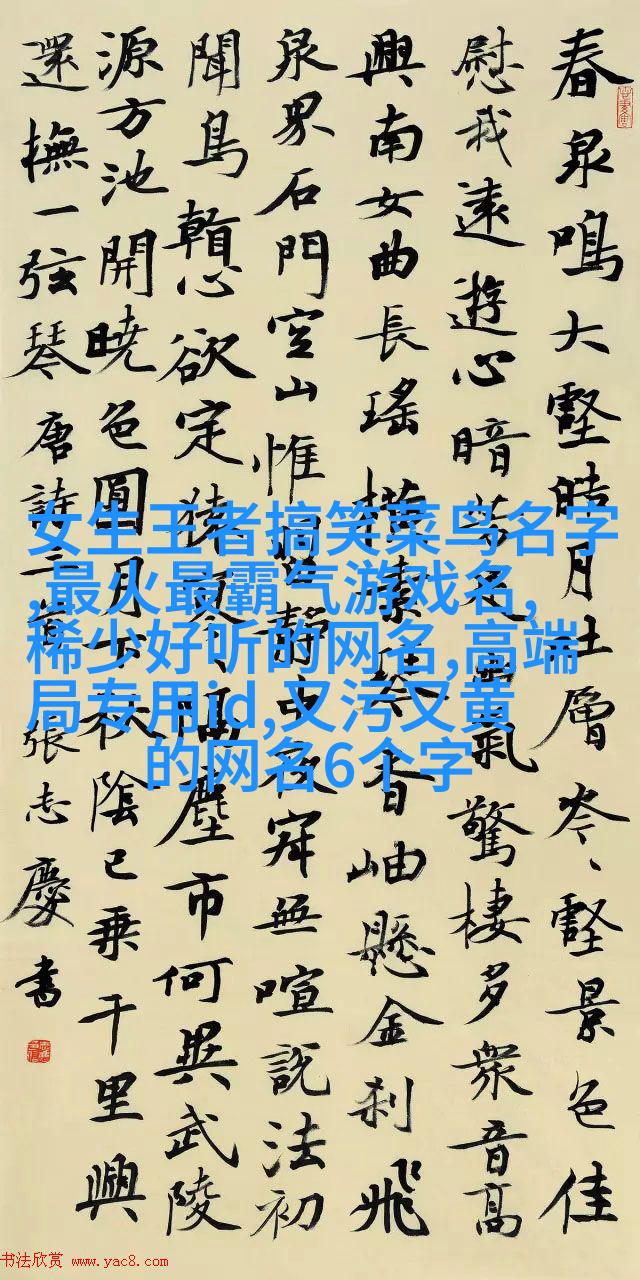 春泉鳴大壑皓月吐層岑岑壑景色佳
慰我遠遊心暗芳足幽氣驚棲多衆音高
興南女曲長瑤橫素琴香岫懸金刹飛
泉界石門空山惟習靜中夜寂無喧説法初
聞鳥看心欲定猿寥寥隔塵市何異武陵
源方池開曉色圓月下秋陰已乗千里興
還撫一弦琴唐詩三首張志慶書
女生王者搞笑菜鸟名字
,最火最霸气游戏名,
稀少好听的网名,高端
局专用id,又污又黄
的网名6个字
书法欣赏 www.yac8.com